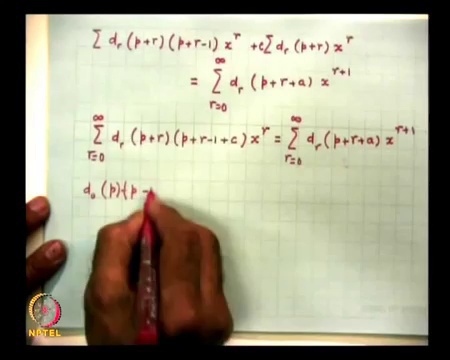 ∑ d_r (p+r)(p+r-1) x^r + c∑ d_r (p+r) x^r
= ∑_{r=0}^{∞} d_r (p+r+a) x^{r+1}
∑_{r=0}^{∞} d_r (p+r)(p+r-1+c) x^r = ∑_{r=0}^{∞} d_r (p+r+a) x^{r+1}
d_0 (p)(p -
NPTEL